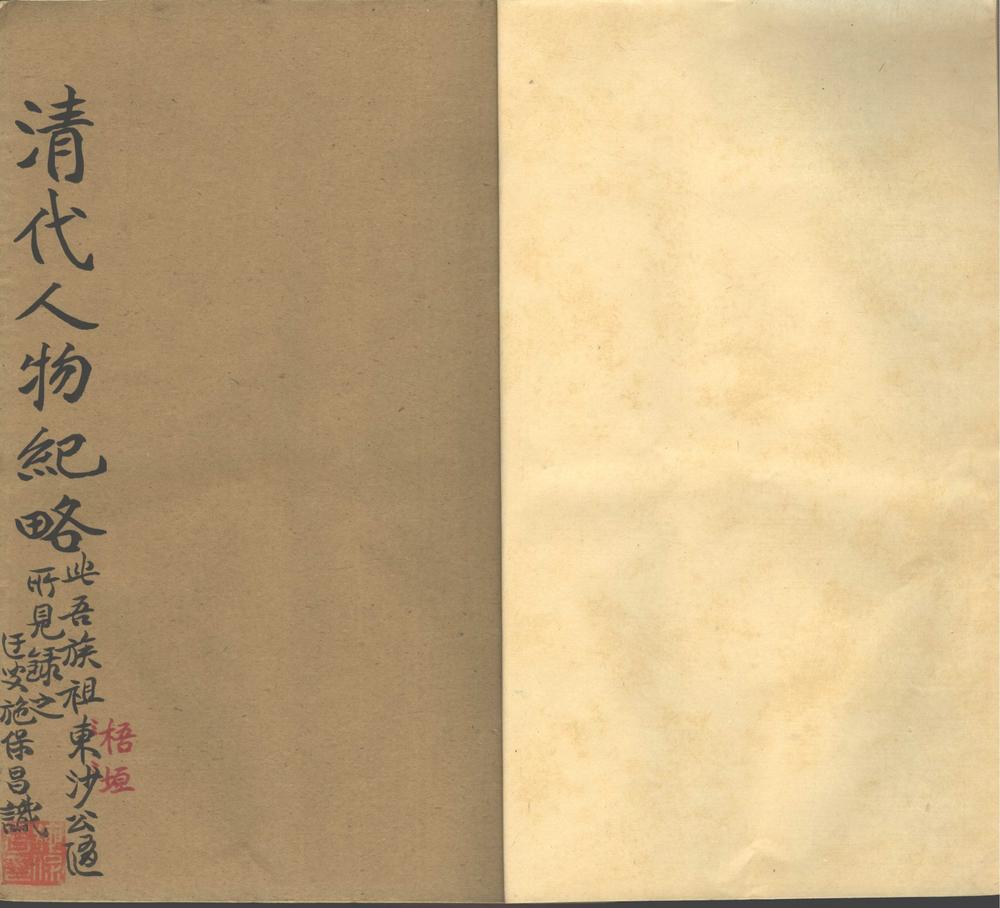 清代人物紀略
此吾族祖東沙公遇
梧垣
所見錄之
施保昌識